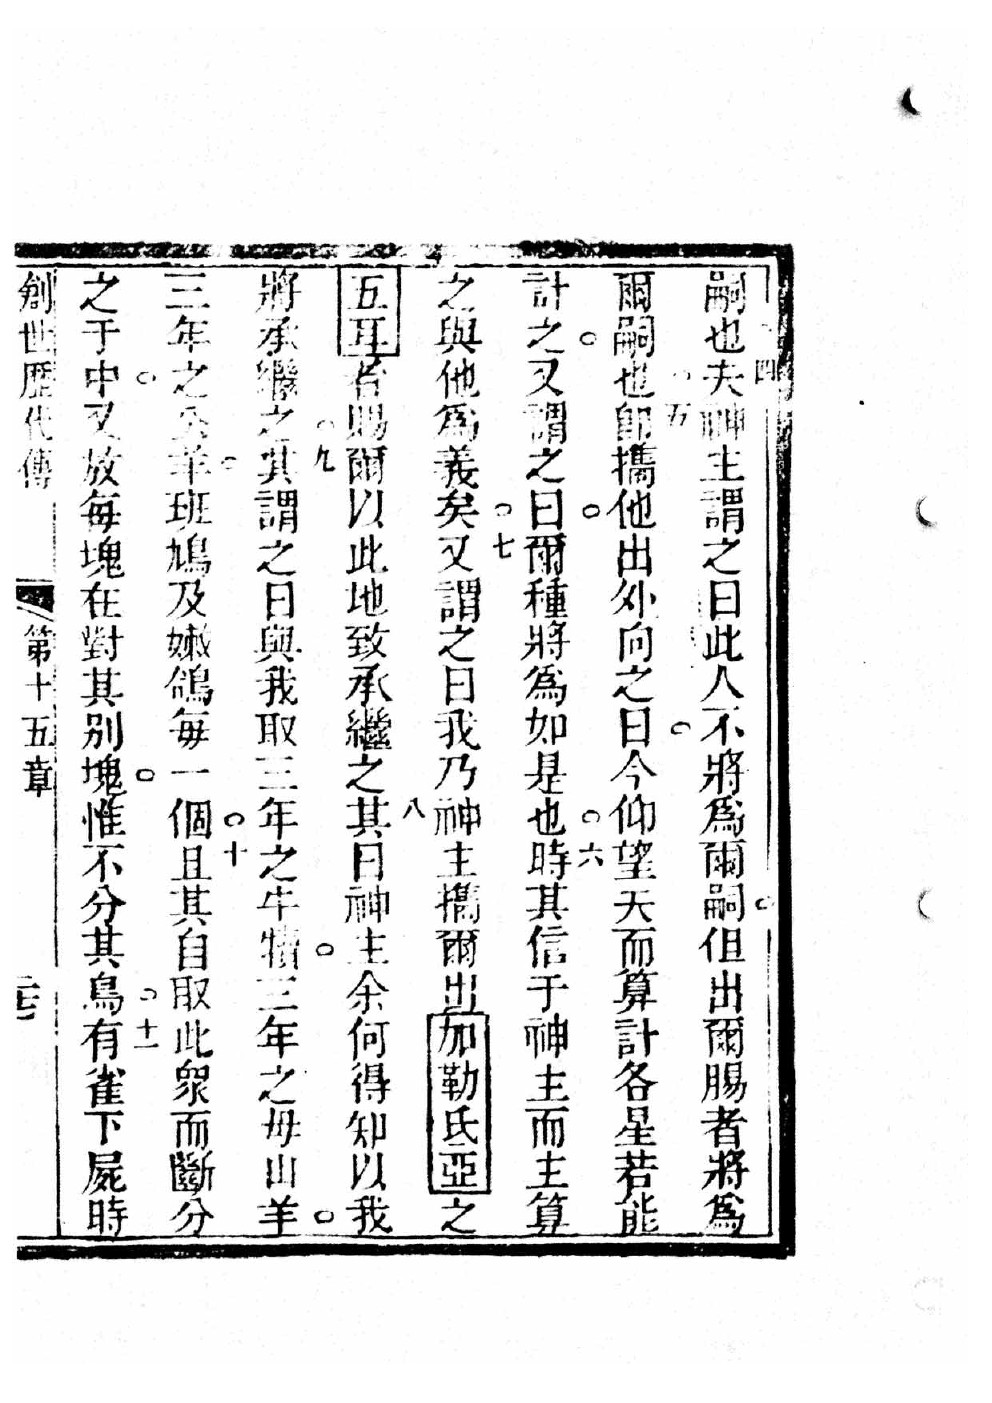 嗣也四夫神主謂之曰此人不將爲爾嗣但出爾腸者將爲
爾嗣也五卽攜他出外向之曰今仰望天而算計各星若能
計之又謂之曰爾種將爲如是也六時其信于神主而主算
之與他爲義矣七又謂之曰我乃神主攜爾出加勒氏亞之
五耳者賜爾以此地致承繼之八其曰神主余何得知以我
將承繼之九其謂之曰與我取三年之牛犢三年之母山羊
三年之公羊班鳩及嫩鴿每一個十且其自取此衆而斷分
之于中又放每塊在對其別塊惟不分其鳥十一有雀下屍時
創世歷代傳 第十五章